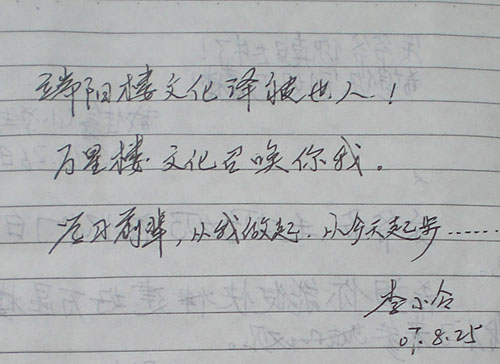 端阳楼文化泽被世人!
万星楼文化召唤你我。
学习前辈,从我做起.从今天起步……
李小合
07.8.25